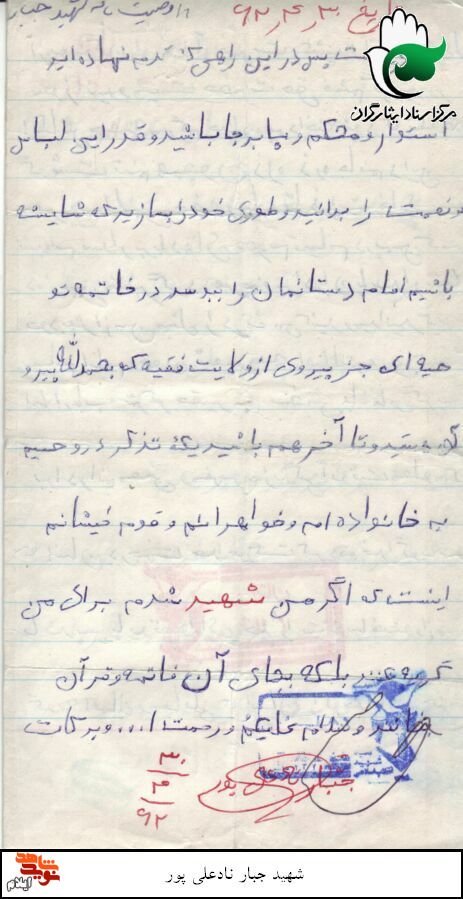 تاریخ ۳۰ر۴ر۶۲
وصیت نامه شهید جبار
مرکز اسناد ایثارگران
است پس در این راهی که قدم نهاده اید
استوار و محکم و پا بر جا باشید و قدر این لباس
و نعمت را بدانید و طوری خود را بسازید که شایسته
باشیم امام دستانمان را ببوسد در خاتمه تو
صیه ای جز پیروی از ولایت فقیه که بحمدالله پیرو
شید و تا آخر هم باشید یک تذکر و
به خانواده ام و خواهرانم و قوم خیشانم
اینست که اگر من شهید شدم برای من
گریه نکنید بلکه بجای آن فاتحه و قرآن
بخوانید و سلام علیکم و رحمت ا... و برکات
جبار نادعلی پور
۳۰
۴
۶۲
شهید جبار نادعلی پور
نوید شاهد
ایلام